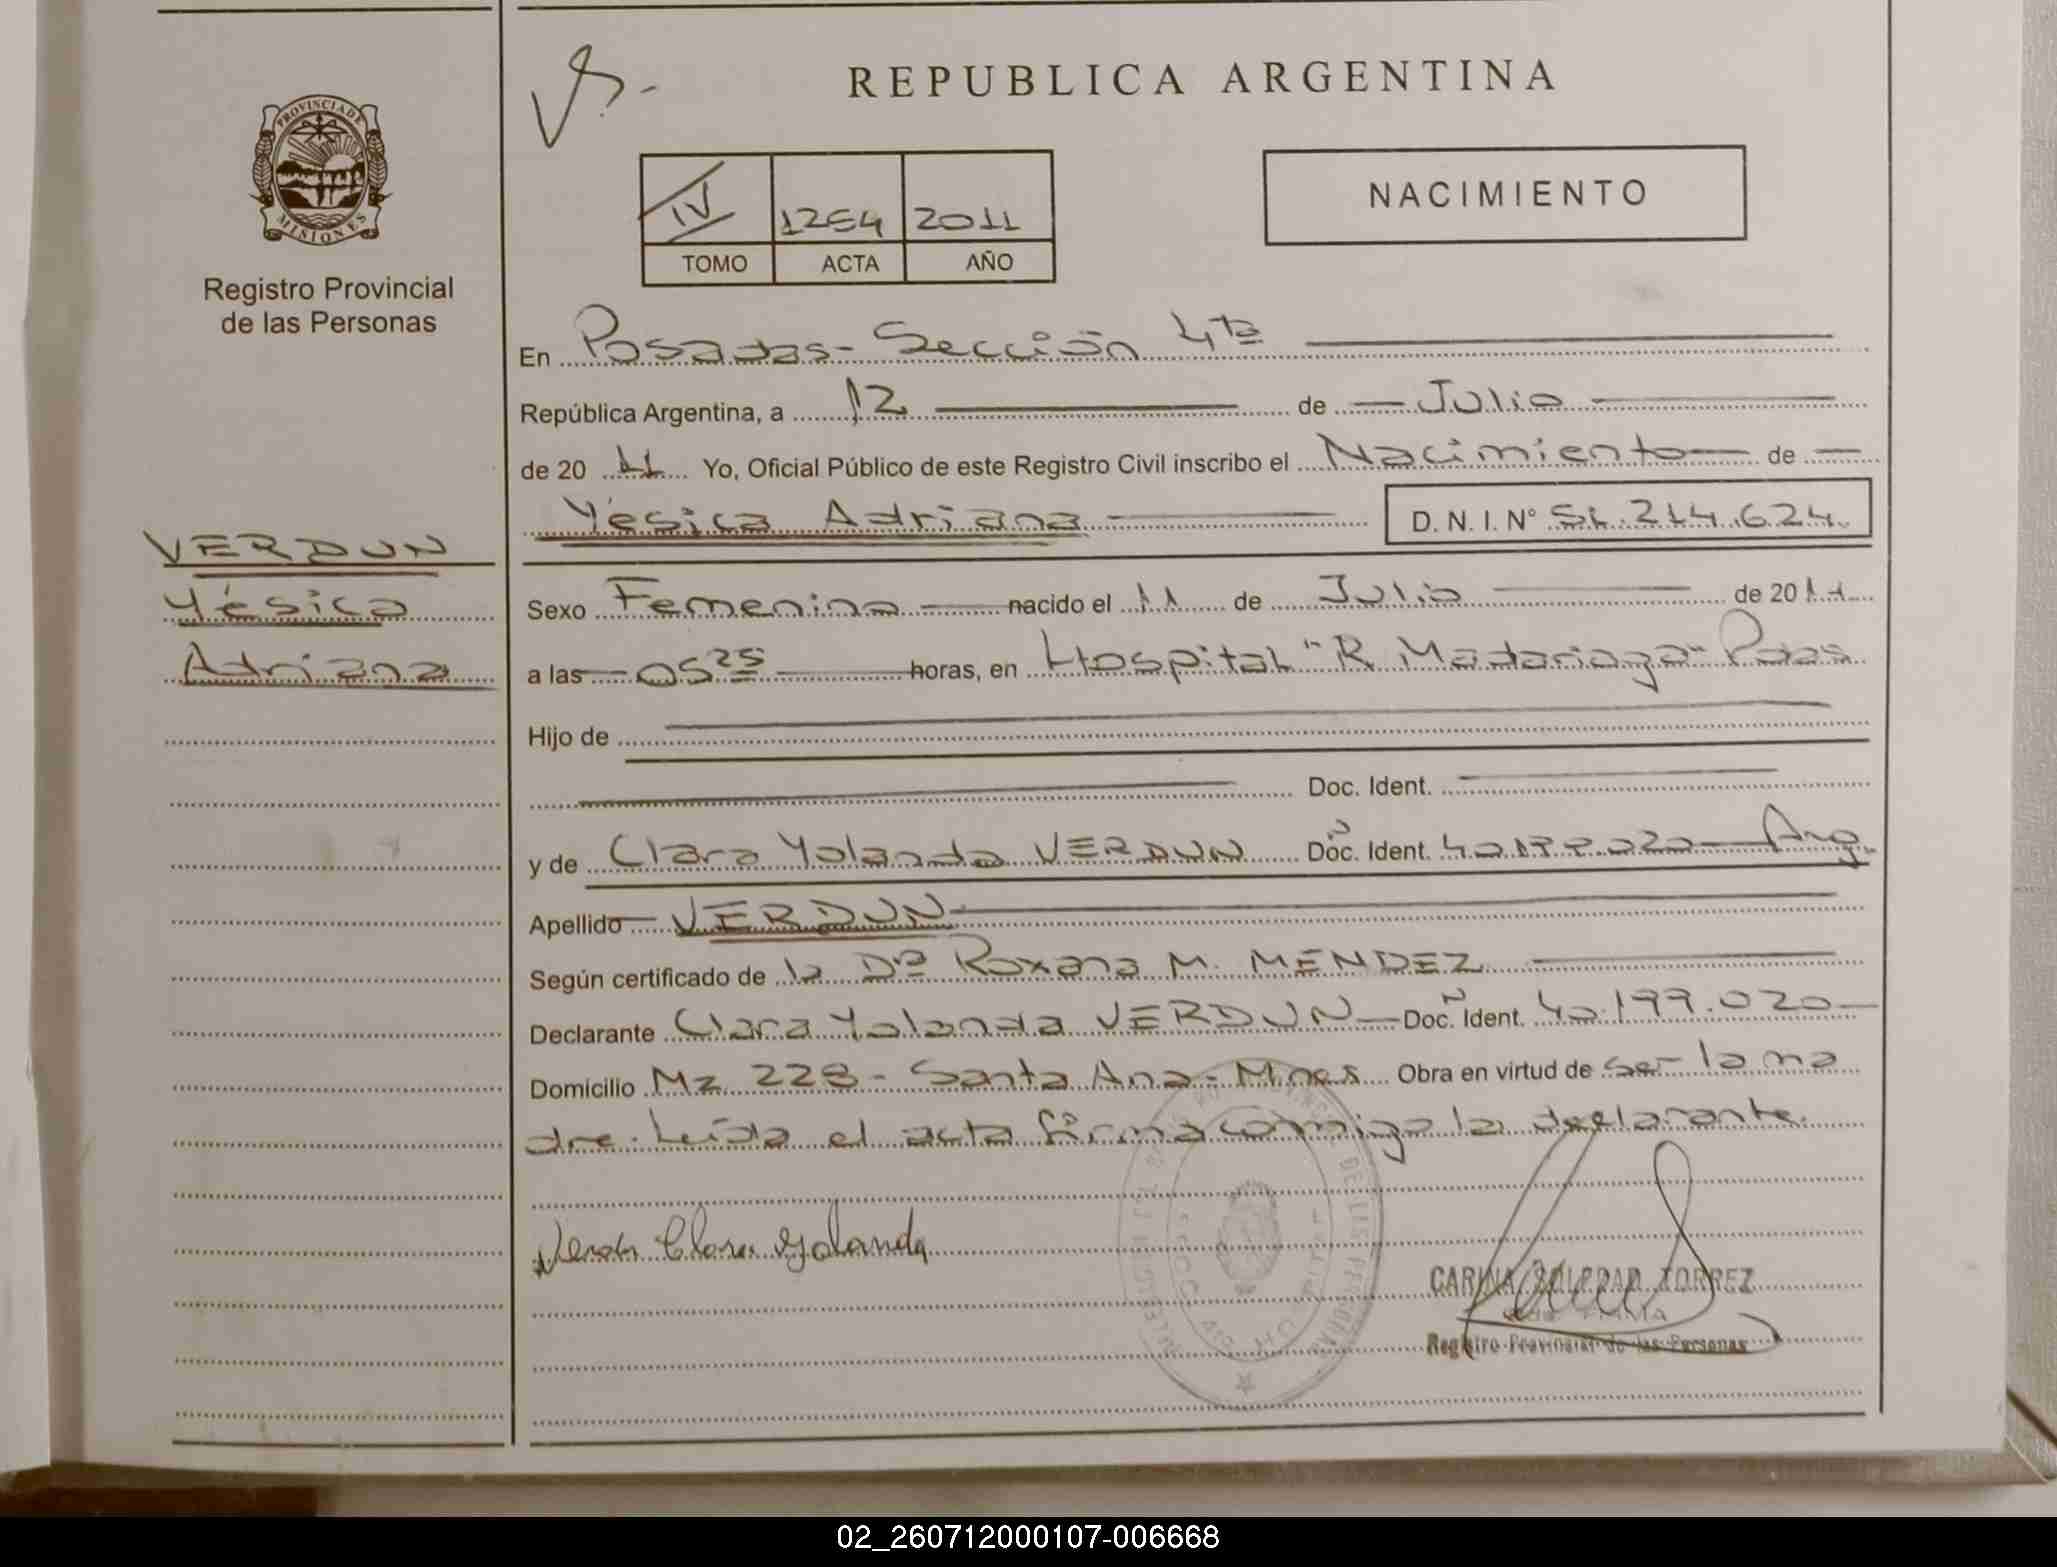 REPUBLICA ARGENTINA
PROVINCIA DE MISIONES
Registro Provincial
de las Personas
IV 1254 2011
TOMO ACTA AÑO
NACIMIENTO
En Posadas - Sección 4ta
República Argentina, a 12 de Julio
de 20 11 Yo, Oficial Público de este Registro Civil inscribo el Nacimiento de
Yésica Adriana D.N.I. Nº 51.214.624
VERDUN
Yésica
Adriana
Sexo Femenino nacido el 11 de Julio de 2011
a las 05 25 horas, en Hospital "R. Madariaga" Pdas
Hijo de
Doc. Ident.
y de Clara Yolanda VERDUN Doc. Ident. 40.199.020 - Arg.
Apellido VERDUN
Según certificado de la Dra Roxana M. MENDEZ
Declarante Clara Yolanda VERDUN Doc. Ident. 40.199.020
Domicilio Mz 228 - Santa Ana - Mnes Obra en virtud de ser la ma
dre. Leída el acta firma conmigo la declarante.
Clara Yolanda
CARINA SOLEDAD TORREZ
Registro Provincial de las Personas
02_260712000107-006668